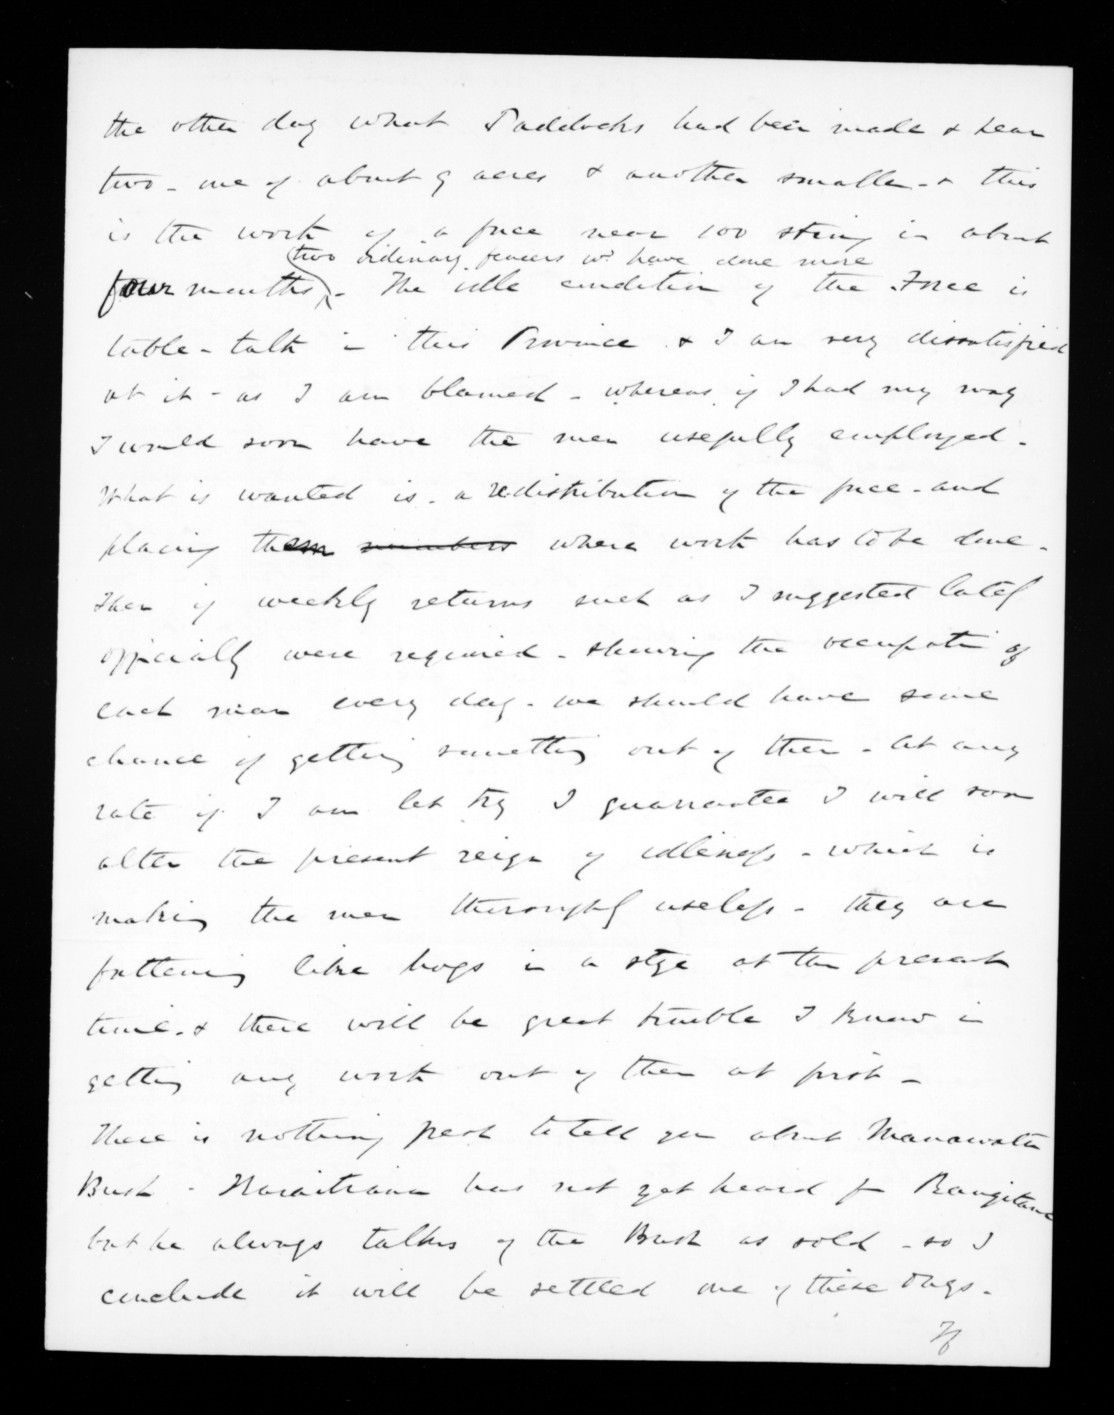 the other day what Paddocks had been made & hear
two - one of about 9 acres & another smaller - & this
is the work of a force near 100 strong in about
(two ordinary fencers wd have done more
four months). The idle condition of the Force is
table-talk in this Province & I am very dissatisfied
at it - as I am blamed - whereas if I had my way
I would soon have the men usefully employed -
What is wanted is - a redistribution of the force - and
placing them numbers where work has to be done -
Then if weekly returns such as I suggested lately
officially were required - shewing the occupatn of
each man every day - we should have some
chance of getting something out of them - At any
rate if I am let try I guarantee I will soon
alter the present reign of idleness - which is
making the men thoroughly useless - they are
fattening like hogs in a stye at the present
time - & there will be great trouble I know in
getting any work out of them at first -
There is nothing fresh to tell you about Manawatu
Bush - has not yet heard fm Rangitane
but he always talks of the Bush as sold - so I
conclude it will be settled one of these days -